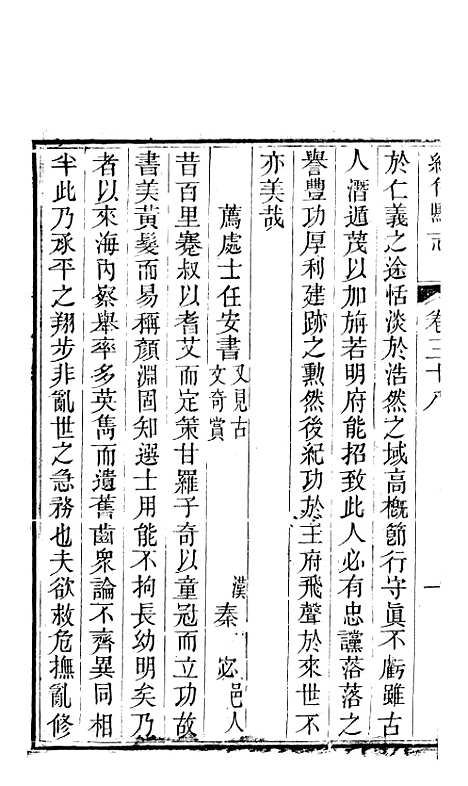 卷三十八
於仁義之途恬淡於浩然之域高槪節行守眞不虧雖古
人潛遁茂以加旃若明府能招致此人必有忠讜落落之
譽豐功厚利建跡之勳然後紀功於王府飛聲於來世不
亦美哉
薦處士任安書又見古文奇賞 漢秦宓邑人
昔百里蹇叔以耆艾而定策甘羅子奇以童冠而立功故
書美黃髮而易稱顏淵固知選士用能不拘長幼明矣乃
者以來海內察舉率多英雋而遺舊齒衆論不齊異同相
半此乃承平之翔步非亂世之急務也夫欲救危撫亂修